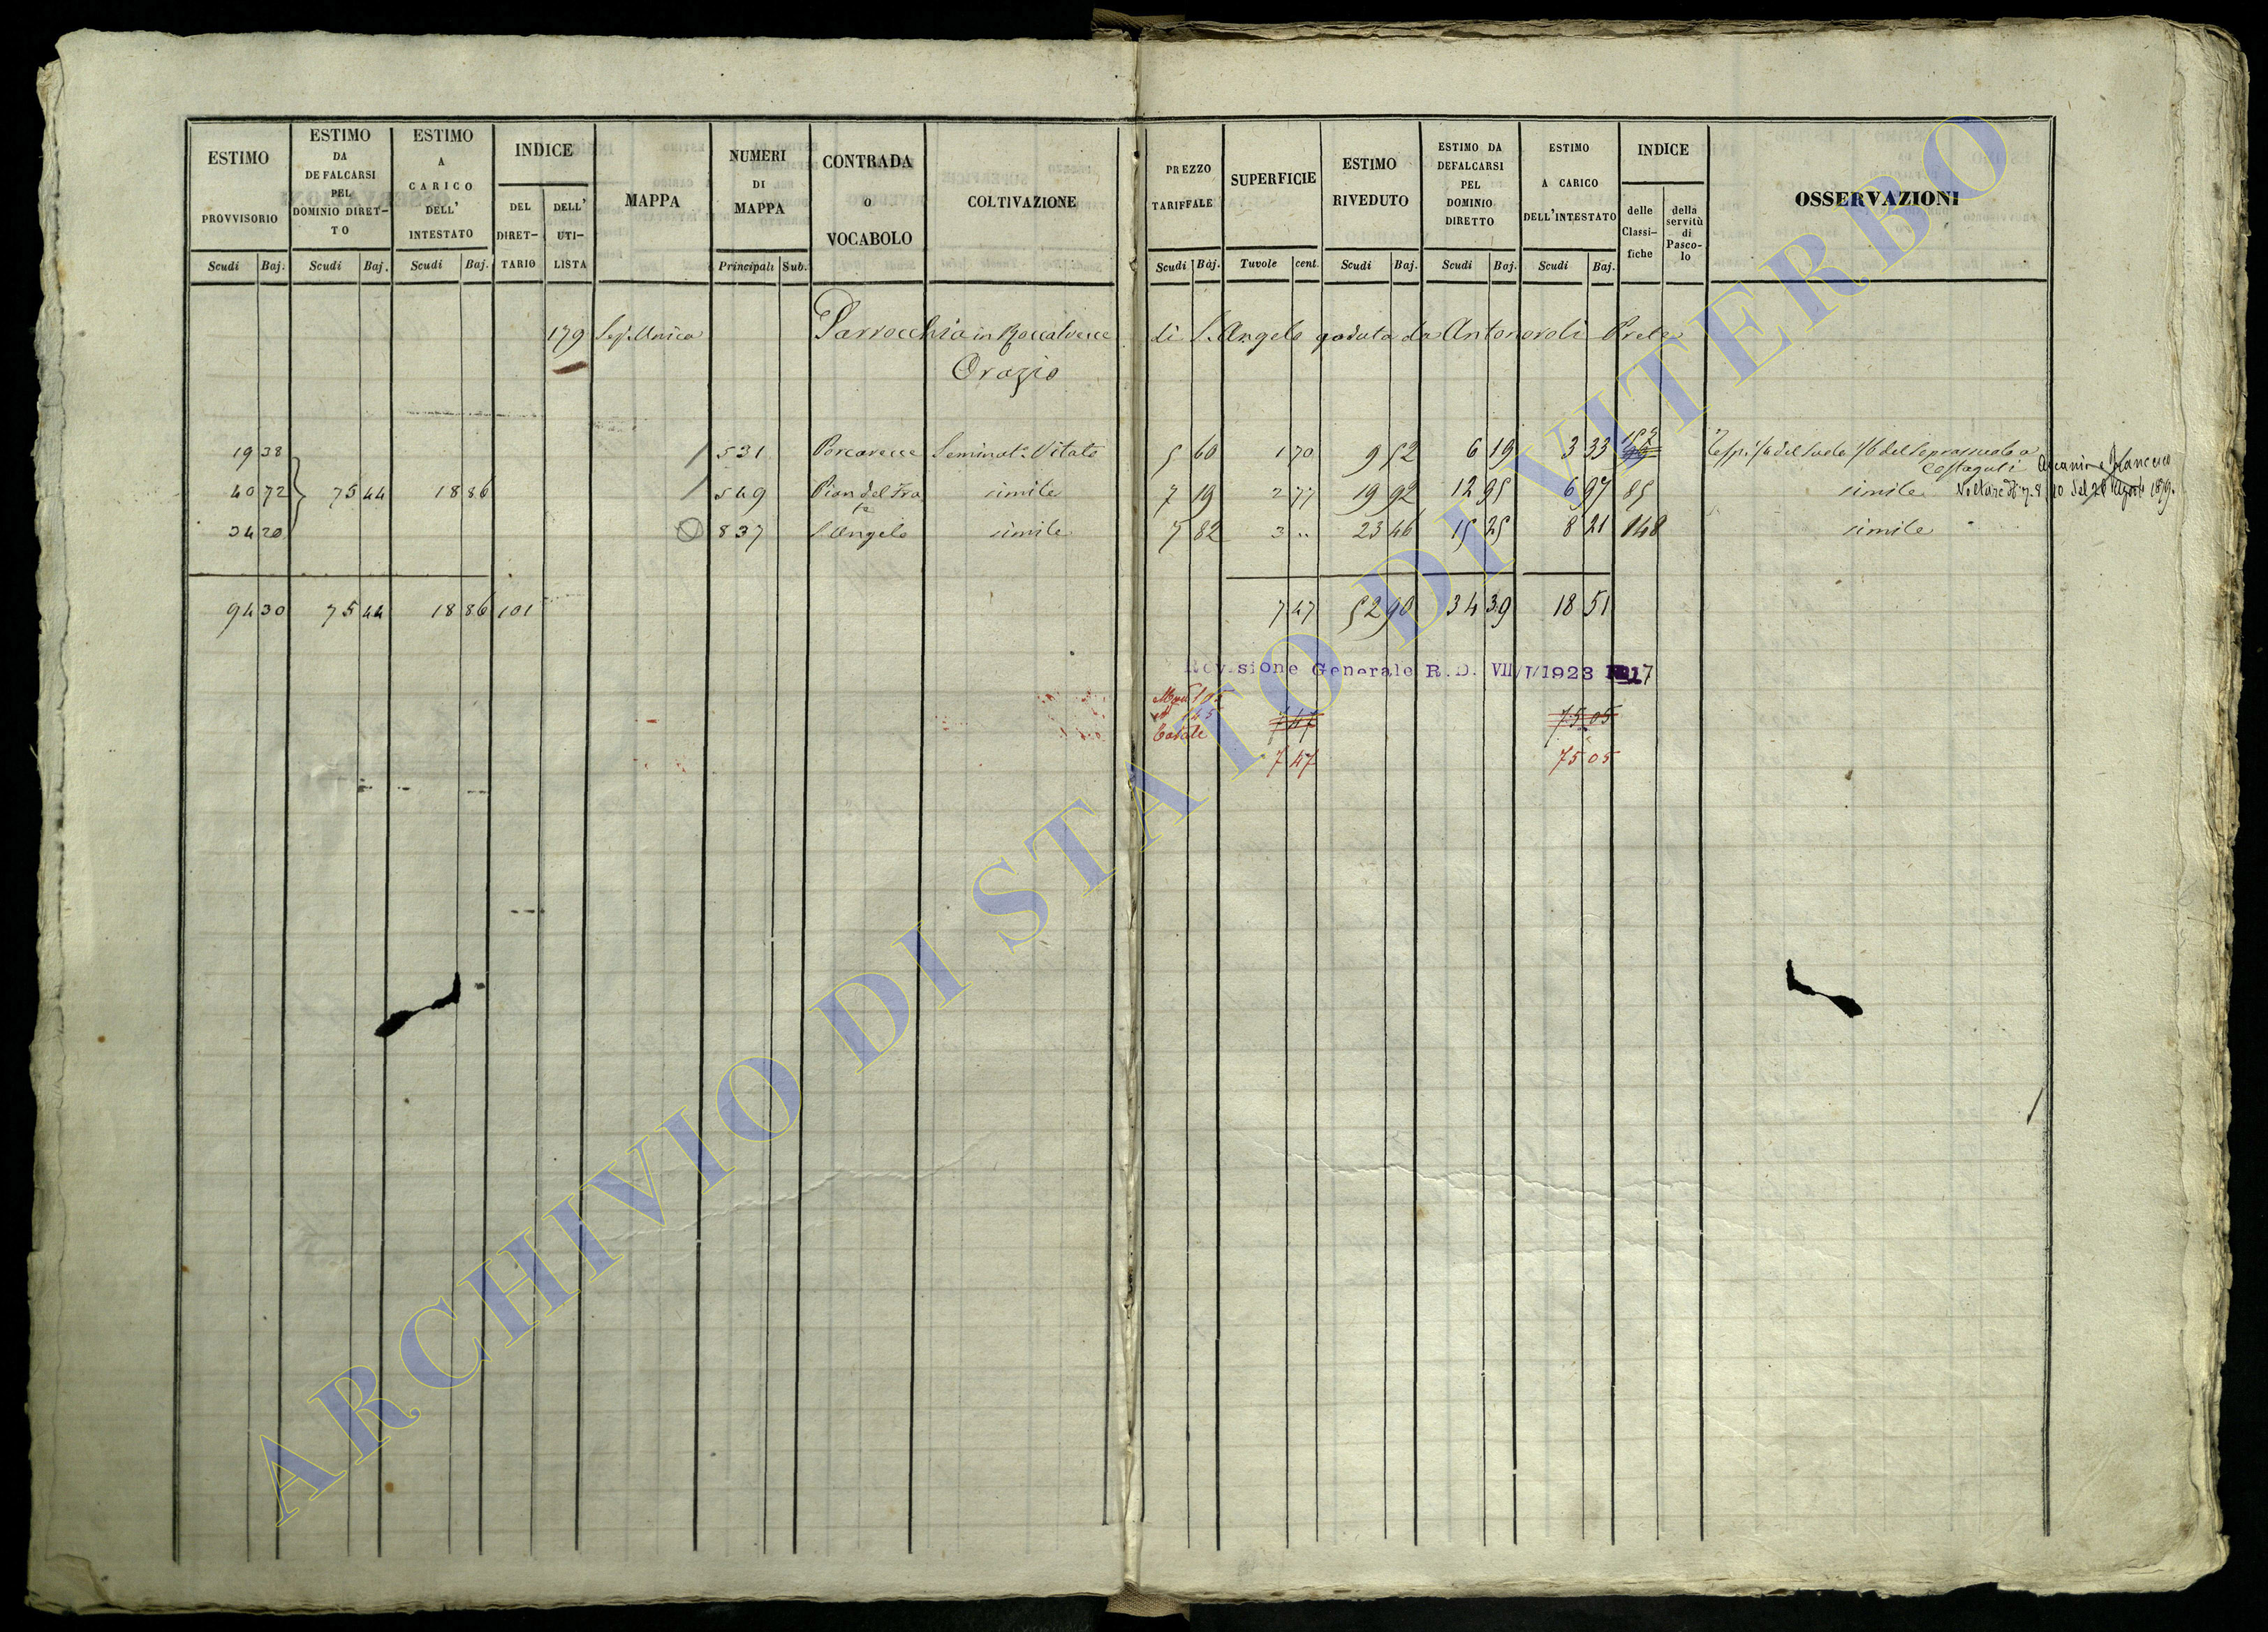 ESTIMO PROVVISORIO Scudi Baj.
ESTIMO DA DEFALCARSI PEL DOMINIO DIRET-TO Scudi Baj.
ESTIMO A CARICO DELL' INTESTATO Scudi Baj.
INDICE DEL DIRET-TARIO DELL' UTI-LISTA
MAPPA
NUMERI DI MAPPA Principali Sub.
CONTRADA O VOCABOLO
COLTIVAZIONE
PREZZO TARIFFALE Scudi Baj.
SUPERFICIE Tavole cent.
ESTIMO RIVEDUTO Scudi Baj.
ESTIMO DA DEFALCARSI PEL DOMINIO DIRETTO Scudi Baj.
ESTIMO A CARICO DELL'INTESTATO Scudi Baj.
INDICE delle Classi-fiche della servitù di Pasco-lo
OSSERVAZIONI
179 Sez. Unica Parrocchia in Roccalvecce di S. Angelo goduta da Antonoroli Prete
Orazio
19 38 531 Porcarecce Seminat. Vitato 5 60 1 70 9 52 6 19 3 33
40 72 75 44 18 86 549 Pian del Fra simile 7 19 2 77 19 92 12 95 6 97 85 simile
34 20 837 S. Angelo simile 7 82 3 " 23 46 15 25 8 21 148 simile
94 30 75 44 18 86 101 7 47 52 90 34 39 18 51
Revisione Generale R.D. VII/I/1923 N 17
7 47 75 05
Totale
7 47 75 05
ARCHIVIO DI STATO DI VITERBO